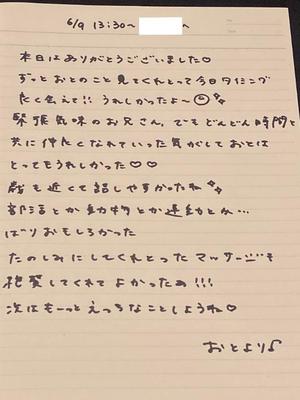 6/9 13:30〜　　　〜
本日はありがとうございました♡
ずっとおとのこと見てくれとって今日タイミング
たく会えて!! うれしかったよ〜☺✨
緊張気味のお兄さん。でもどんどん時間と
共に仲良くなれていった気がしておとは
とってもうれしかった♡♡
歳も近くて話しやすかったね✨
部活とか動物とか運動とか…
ばりおもしろかった
たのしみにしてくれとったマッサージも
絶賛してくれてよかったぁ!!!
次はも〜っとえっちなことしようね♡
おとより♪